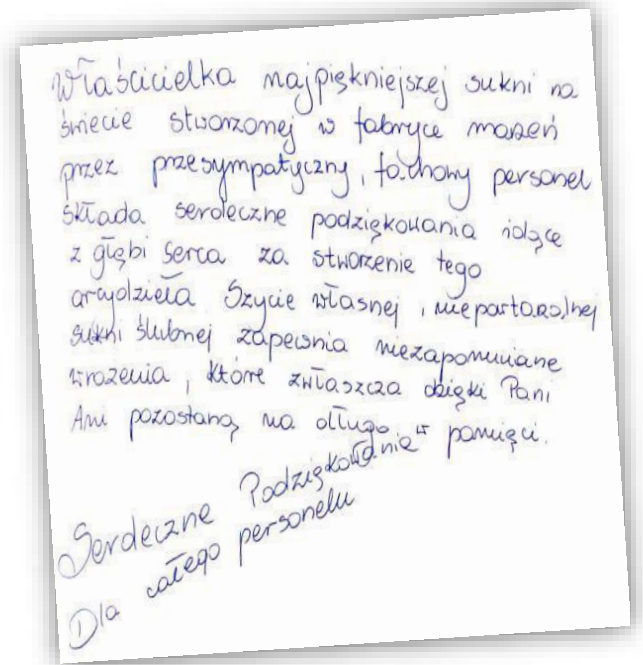 Właścicielka najpiękniejszej sukni na
świecie stworzonej w fabryce marzeń
przez przesympatyczny, fachowy personel
składa serdeczne podziękowania idące
z głębi serca za stworzenie tego
arcydzieła Szycie własnej, niepowtarzalnej
sukni ślubnej zapewnia niezapomniane
wrażenia, które zwłaszcza dzięki Pani
Ani pozostaną na długo w pamięci.
Serdeczne Podziękowania
Dla całego personelu